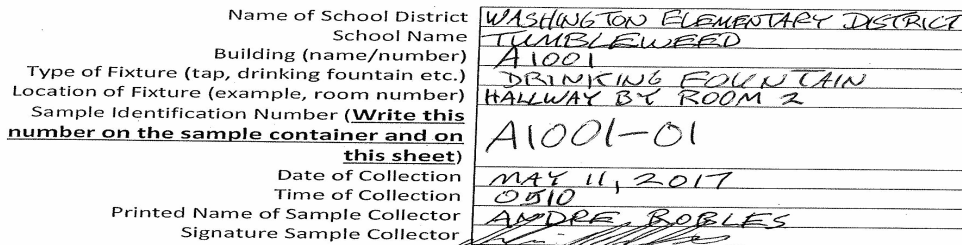 Name of School District WASHINGTON ELEMENTARY DISTRICT
School Name TUMBLEWEED
Building (name/number) A1001
Type of Fixture (tap, drinking fountain etc.) DRINKING FOUNTAIN
Location of Fixture (example, room number) HALLWAY BY ROOM 2
Sample Identification Number (Write this
number on the sample container and on A1001-01
this sheet)
Date of Collection MAY 11, 2017
Time of Collection 0510
Printed Name of Sample Collector ANDRE ROBLES
Signature Sample Collector